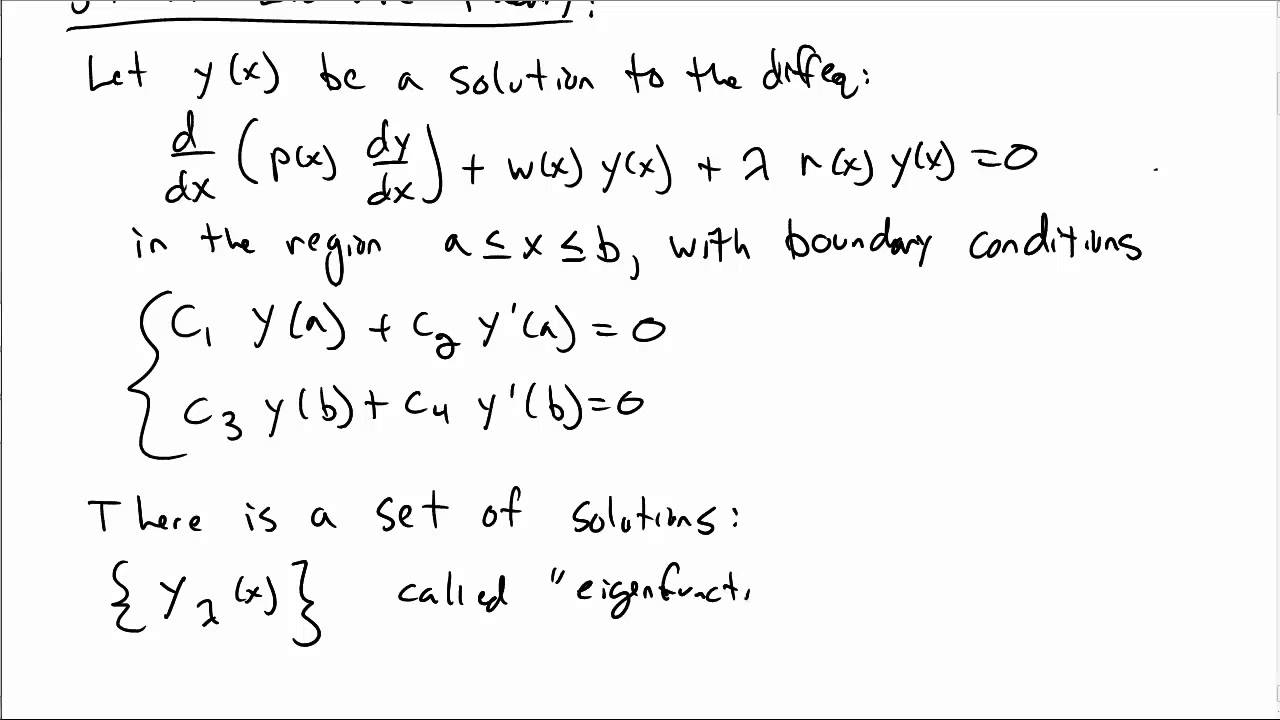 Let y(x) be a solution to the diffeq:
d/dx (p(x) dy/dx) + w(x) y(x) + λ r(x) y(x) = 0
in the region a ≤ x ≤ b, with boundary conditions
{ C₁ y(a) + C₂ y'(a) = 0
C₃ y(b) + C₄ y'(b) = 0
There is a set of solutions:
{ y_λ (x) } called "eigenfuncti